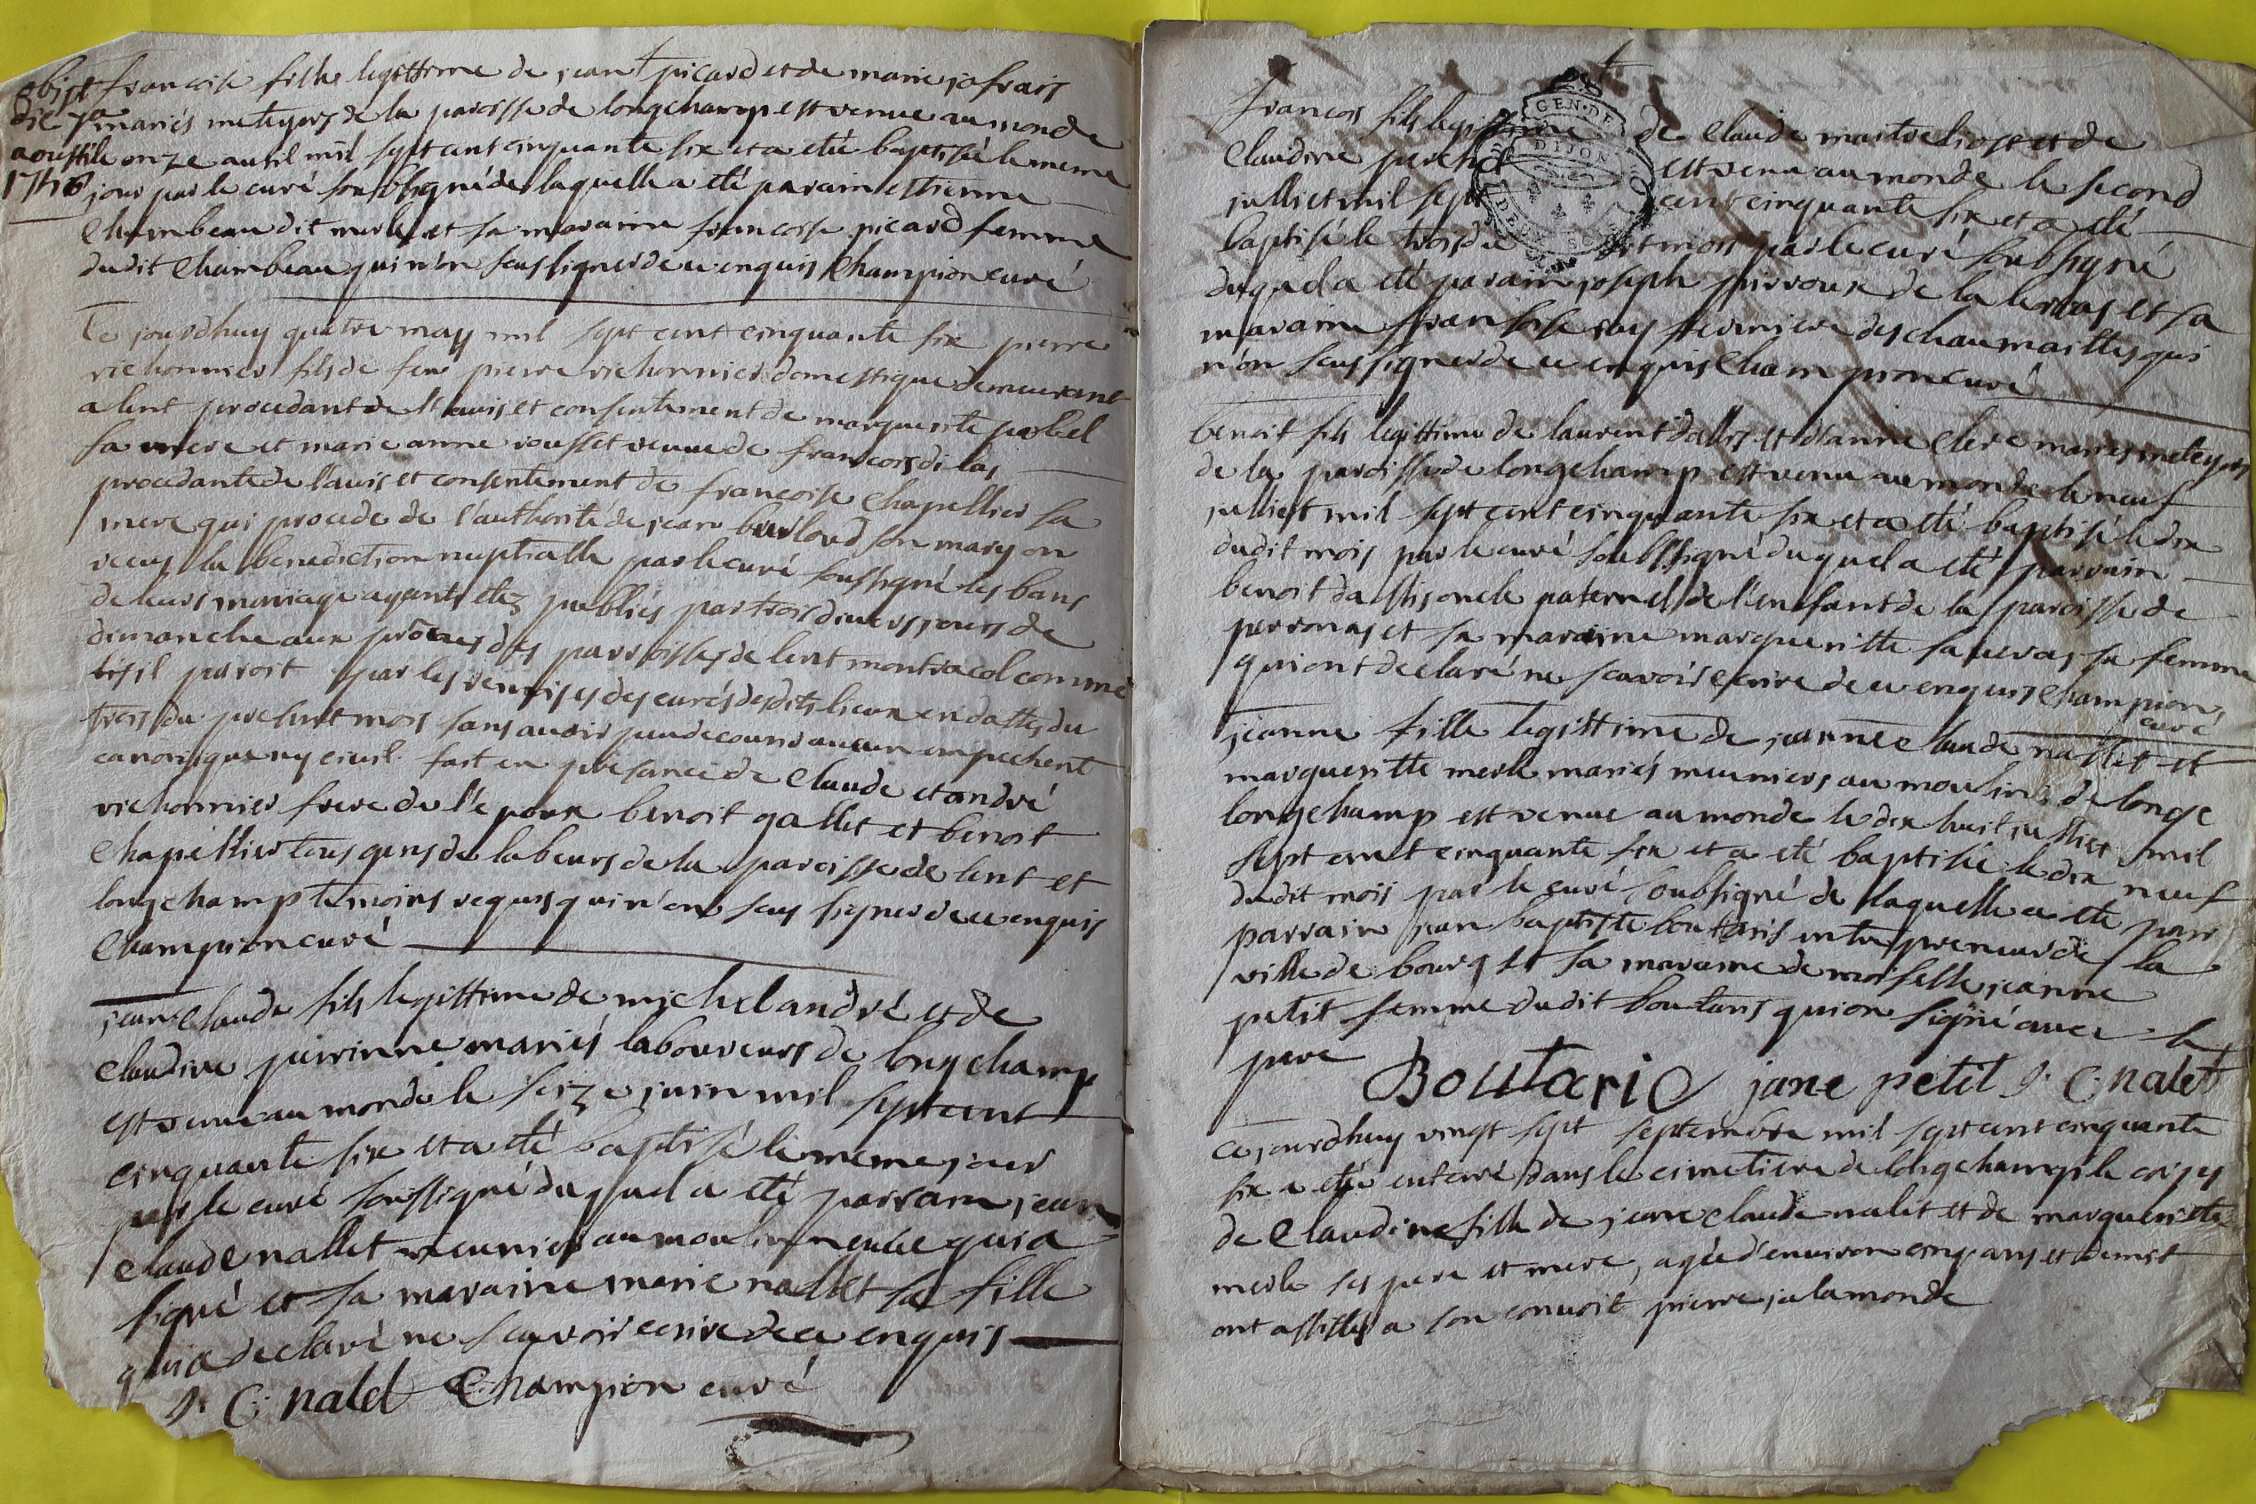 obijt
die 7a
aoustile
1756
francoise fille legittime de jean picard et de marie jofrais
mariés meteyers de la paroisse de longchamp est venue au monde
onze auril mil sept cent cinquante six et a eté baptisée le meme
jour par le curé soubsigné de laquelle a eté parain estienne
Chambeau dit merle et sa maraine francoise picard femme
dudit Chambeau qui n'on seus signer de ce enquis Champion curé
Ce jourdhuy quatre may mil sept cent cinquante six pierre
richonnier fils de feu pierre richonnier domestique demeurant
a lent procedant de l'auis et consentement de marguerite
sa mere et marie anne rousset veuve de francois dilas
procedante de l'auis et consentement de francoise Chapellier sa
mere qui procede de l'authorité de jean burlord son mary on
recus la benediction nuptialle par le curé soussigné les bans
de leurs mariage ayants etez publiés par trois diuers jours de
dimanche aux prônes des parroisses de lent montracol comme
il paroit par les remises des curés desdits lieux en dattes du
trois du present mois sans auoir peu decouurir aucun empechent
canonique ny ciuil. fait en presance de Claude et andré
richonnier frere de l'epoux benoit gallet et benoit
Chapellier tous gens de labeurs de la paroisse de lent et
longchamp temoins requis qui n'on seus signer de ce enquis
Champion curé
jean Claude fils legittime de michel andré et de
Claudine perrinne mariés laboureurs de longchamp
est venu au monde le seize juin mil sept cent
cinquante six et a eté baptisé le meme jour
par le curé soussigné duquel a eté parrain jean
Claude nallet meunier au moulin neuf qui a
signé et sa maraine marie nallet sa fille
qui a declaré ne scavoir ecrire de ce enquis
J. C. nalet Champion curé
GEN. DE DIJON
francois fils legittime de Claude et de
Claudine est venu au monde le second
julliet mil sept cent cinquante six et a eté
baptisé le trois du dit mois par le curé soubsigné
duquel a eté parain joseph perroux de la et sa
maraine francoise fermiere des chaumailles qui
n'on seus signer de ce enquis Champion curé
benoit fils legittime de laurent dallis et d'anne Clere mariés meteyers
de la paroisse de longchamp est venu au monde le neuf
julliet mil sept cent cinquante six et a eté baptisé le dix
dudit mois par le curé soubsigné duquel a eté parrain
benoit dallis oncle paternel de l'enfant de la paroisse de
perronas et sa maraine marguerite sa femme
qui ont declaré ne scavoir ecrire de ce enquis Champion
curé
jeanne fille legittime de jeanne Claude nallet et
marguerite merle mariés meuniers au moulin de longe
longchamp est venue au monde le dix huit julliet mil
sept cent cinquante six et a eté baptisée le dix neuf
dudit mois par le curé soubsigné de laquelle a eté par
parrain jean baptiste boutaris entrepreneur de la
ville de bourg et sa maraine demoiselle jeanne
petit femme dudit boutaris qui on signé avec le
pere Boutaric jane petit J. C. nalet
ce jourdhuy vingt sept septembre mil sept cent cinquante
six a eté enterré dans le cimetiere de longchamp le corps
de Claudine fille de jean claude nalet et de marguerite
merle ses pere et mere, agée d'environ cinq ans et demit
ont assisté a son convoit pierre jalamonde